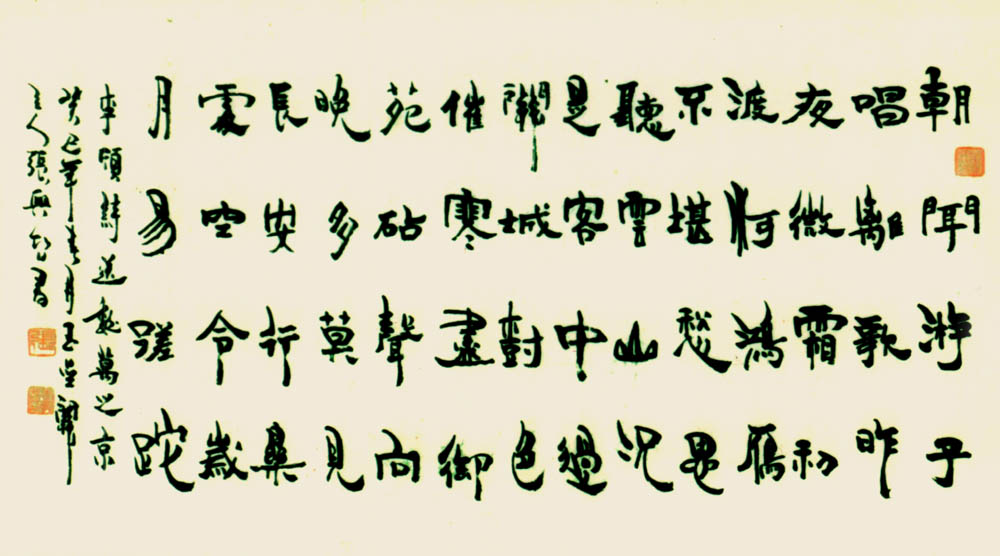 朝聞游子
唱離歌昨
夜微霜初
渡河鴻雁
不堪愁里
聽雲山況
是客中過
關城對色
催寒盡御
苑砧聲向
晚多莫見
長安行樂
處空令歲
月易蹉跎
李頎詩送魏萬之京
癸巳年春月
主人張興書